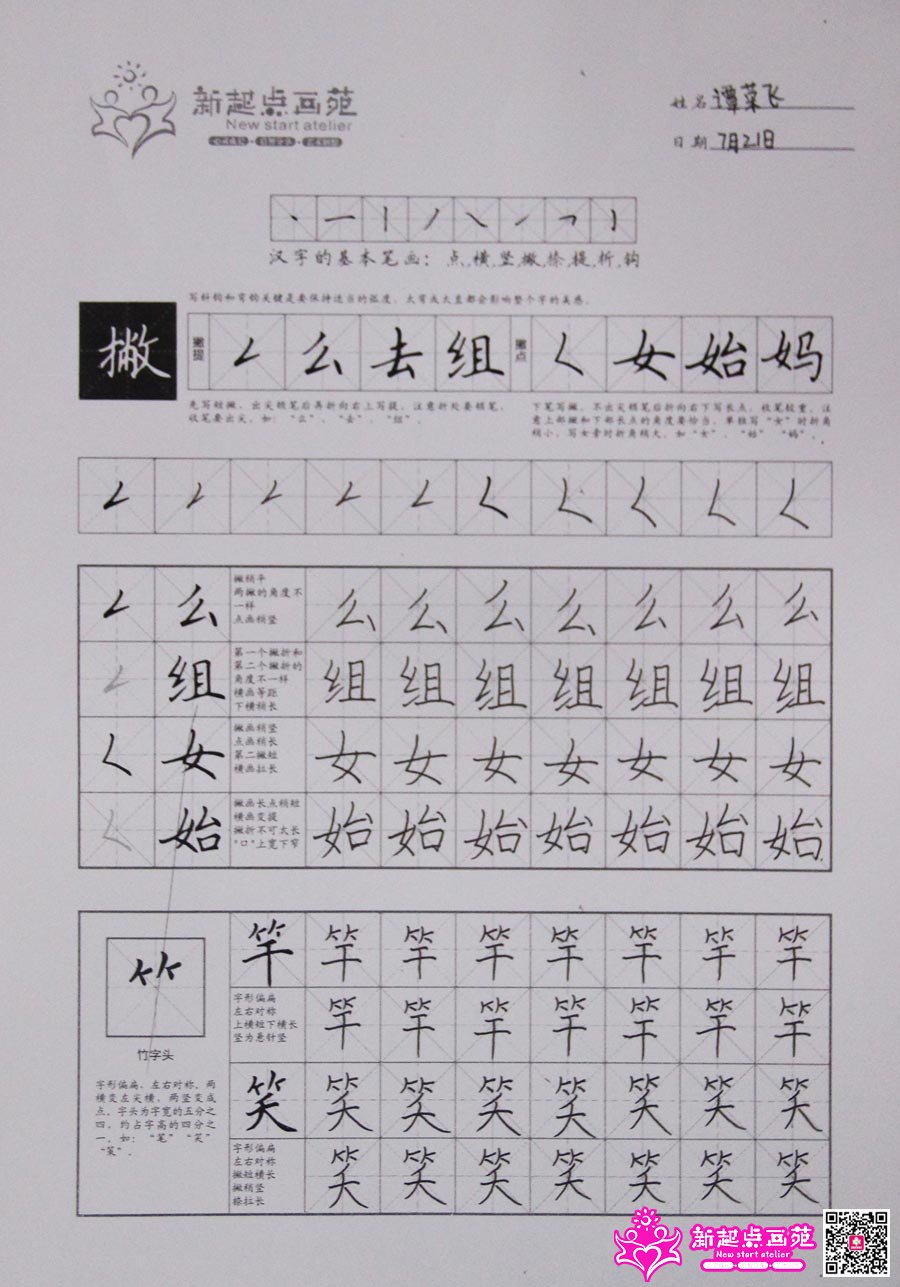 新起点画苑
New start atelier
姓名 谭菜飞
日期 7月21日
汉字的基本笔画：点,横,竖,撇,捺,提,折,钩
写斜钩和弯钩关键是要保持适当的弧度，太弯或太直都会影响整个字的美感。
撇
撇提 𠃋 么 去 组 撇点 𡿨 女 始 妈
先写短撇，出尖顿笔后再折向右上写提，注意折处要顿笔，
收笔要出尖。如：“么”、“去”、“组”。
下笔写撇，不出尖顿笔后折向右下写长点，收笔较重，注
意上部撇和下部长点的角度要恰当，单独写“女”时折角
稍小，写女旁时折角稍大，如“女”、“始”“妈”。
么
撇稍平
两撇的角度不
一样
点画稍竖
么 么 么 么 么 么 么
组
第一个撇折和
第二个撇折的
角度不一样
横画等距
下横稍长
组 组 组 组 组 组 组
女
撇画稍竖
点画稍长
第二撇短
横画拉长
女 女 女 女 女 女 女
始
撇画长点稍短
横画变提
撇折不可太长
“口”上宽下窄
始 始 始 始 始 始 始
竹字头
字形偏扁，左右对称，两
横变左尖横，两竖变成
点，字头为字宽的五分之
四，约占字高的四分之
一，如：“笔”“笑”
“笨”。
竿 竿 竿 竿 竿 竿 竿 竿
字形偏扁
左右对称
上横短下横长
竖为悬针竖
竿 竿 竿 竿 竿 竿 竿
笑 笑 笑 笑 笑 笑 笑 笑
字形偏扁
左右对称
撇短横长
撇稍竖
捺拉长
笑 笑 笑 笑 笑 笑 笑
新起点画苑
New start atelier